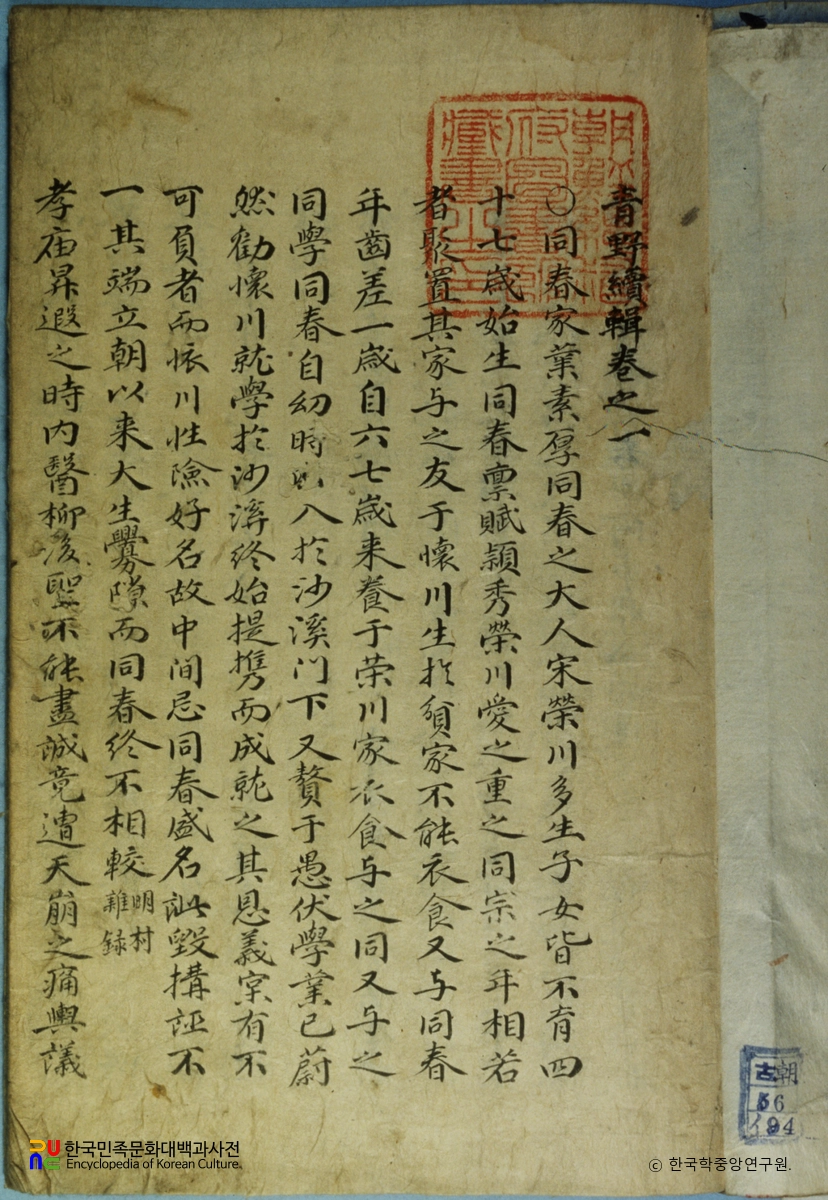 青野續輯卷之一
○同春家業素厚同春之大人宋榮川多生子女皆不育四
十七歲始生同春禀賦穎秀榮川愛之重之同宗之年相若
者聚置其家与之友于懷川生於貧家不能衣食又与同春
年齒差一歲自六七歲来養于荣川家衣食与之同又与之
同學同春自幼時 入於沙溪门下又贅于愚伏學業已蔚
然勸懷川就學於沙溪终始提携而成就之其恩義宲有不
可負者而懷川性險好名故中间忌同春盛名訿毀搆誣不
一其端立朝以来大生釁隙而同春终不相較 明村
雜録
孝庙昇遐之時内醫柳後聖不能盡誠竟遭天崩之痛輿議
朝鮮總督府圖書館藏書之印
古朝
56
194
한국민족문화대백과사전
Encyclopedia of Korean Culture.
© 한국학중앙연구원.